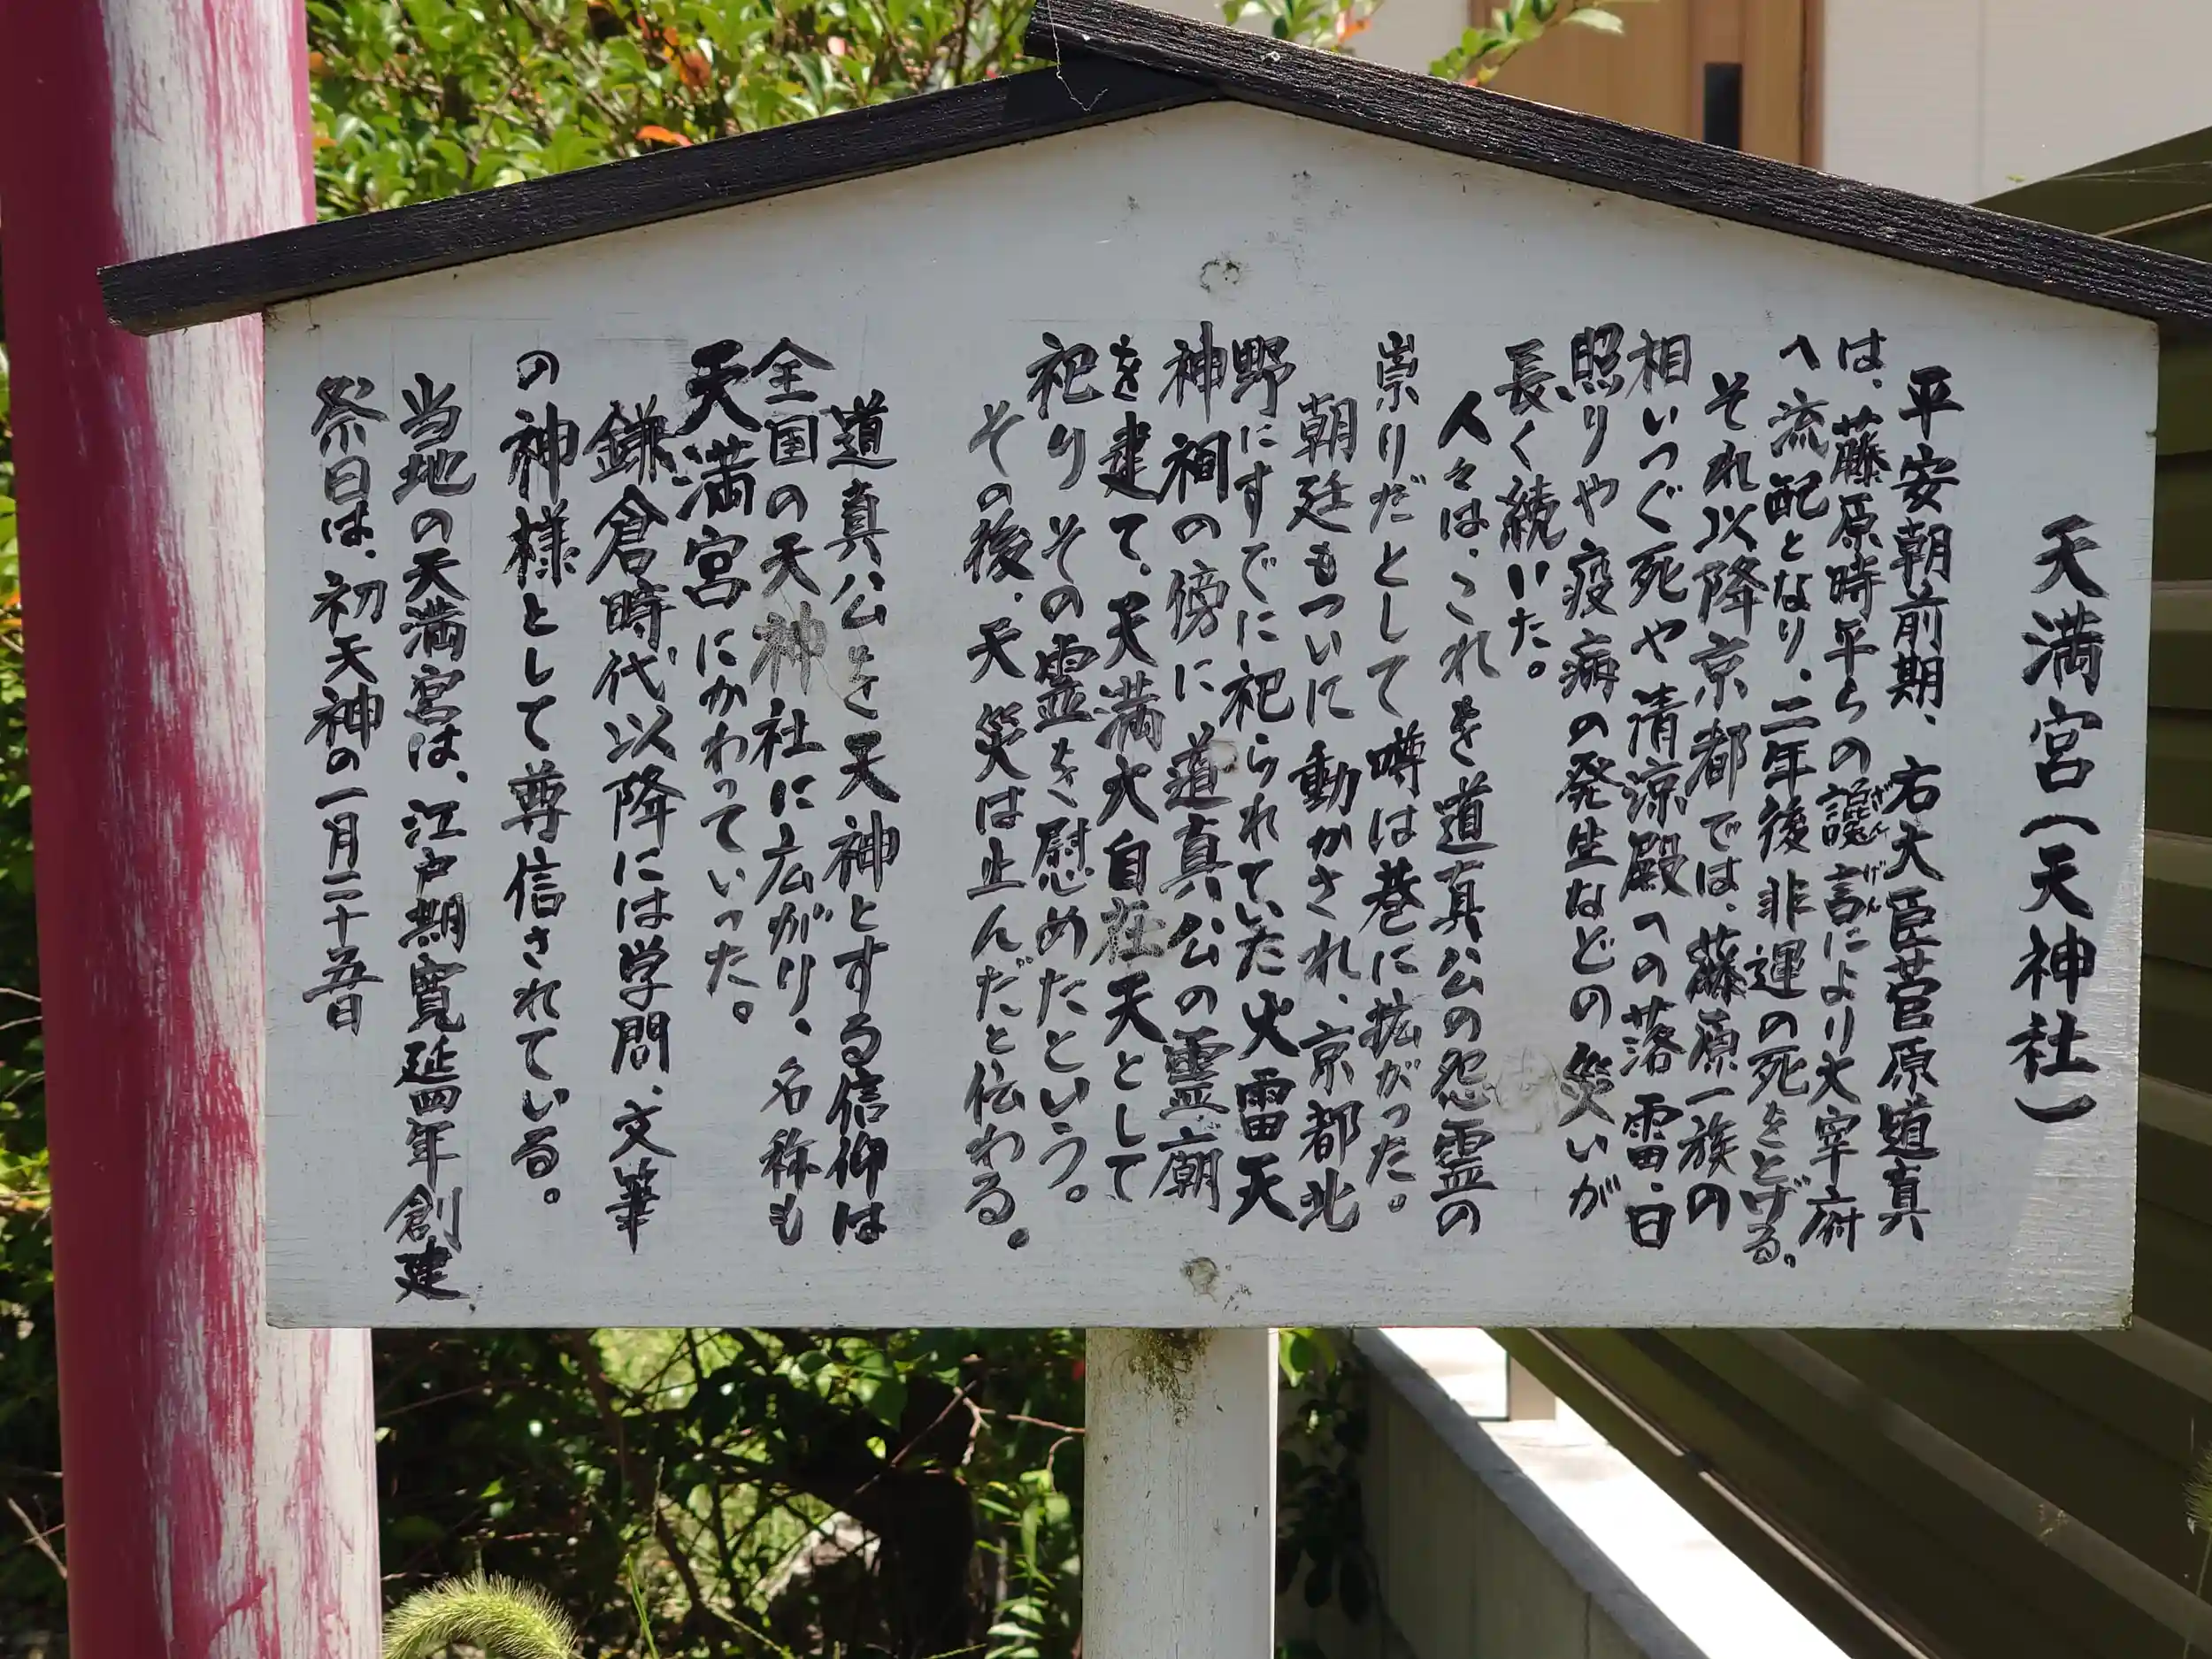 天満宮(天神社)
平安朝前期、右大臣菅原道真
は、藤原時平らの讒言により大宰府
へ流配となり、二年後非運の死をとげる。
それ以降京都では、藤原一族の
相いつぐ死や清涼殿への落雷、日
照りや疫病の発生などの災いが
長く続いた。
人々は、これを道真公の怨霊の
崇りだとして噂は巷に拡がった。
朝廷もついに動かされ、京都北
野にすでに祀られていた火雷天
神祠の傍に道真公の霊廟
を建て、天満大自在天として
祀りその霊を慰めたという。
その後、天災は止んだと伝わる。
道真公を天神とする信仰は
全国の天神社に広がり、名称も
天満宮にかわっていった。
鎌倉時代以降には学問、文筆
の神様として尊信されている。
当地の天満宮は、江戸期寛延四年創建、
祭日は、初天神の一月二十五日